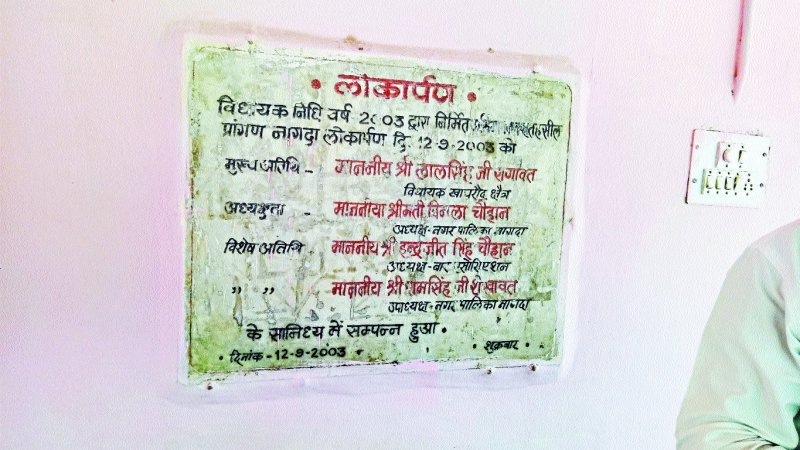 • लोकार्पण •
विधायक निधि वर्ष 2003 द्वारा निर्मित तहसील
प्रांगण नागदा लोकार्पण दि. 12-9-2003 को
मुख्य अतिथि - माननीय श्री लालसिंह जी राणावत
विधायक खाचरौद क्षैत्र
अध्यक्षता - माननीया श्रीमती विमला चौहान
अध्यक्ष-नगर पालिका नागदा
विशेष अतिथि - माननीय श्री इन्द्रजीत सिंह चौहान
अध्यक्ष-बार एसोशिएशन
" " माननीय श्री रामसिंह जी शेखावत
उपाध्यक्ष-नगर पालिका नागदा
के सानिध्य में सम्पन्न हुआ •
• दिनांक - 12-9-2003 • शुक्रवार •